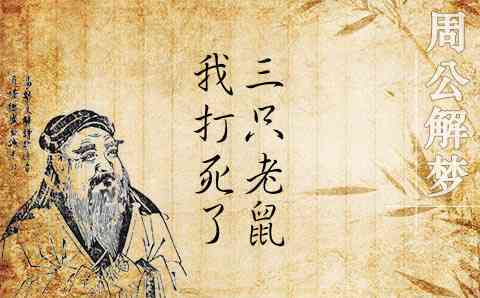 周公解梦
三只老鼠
我打死了